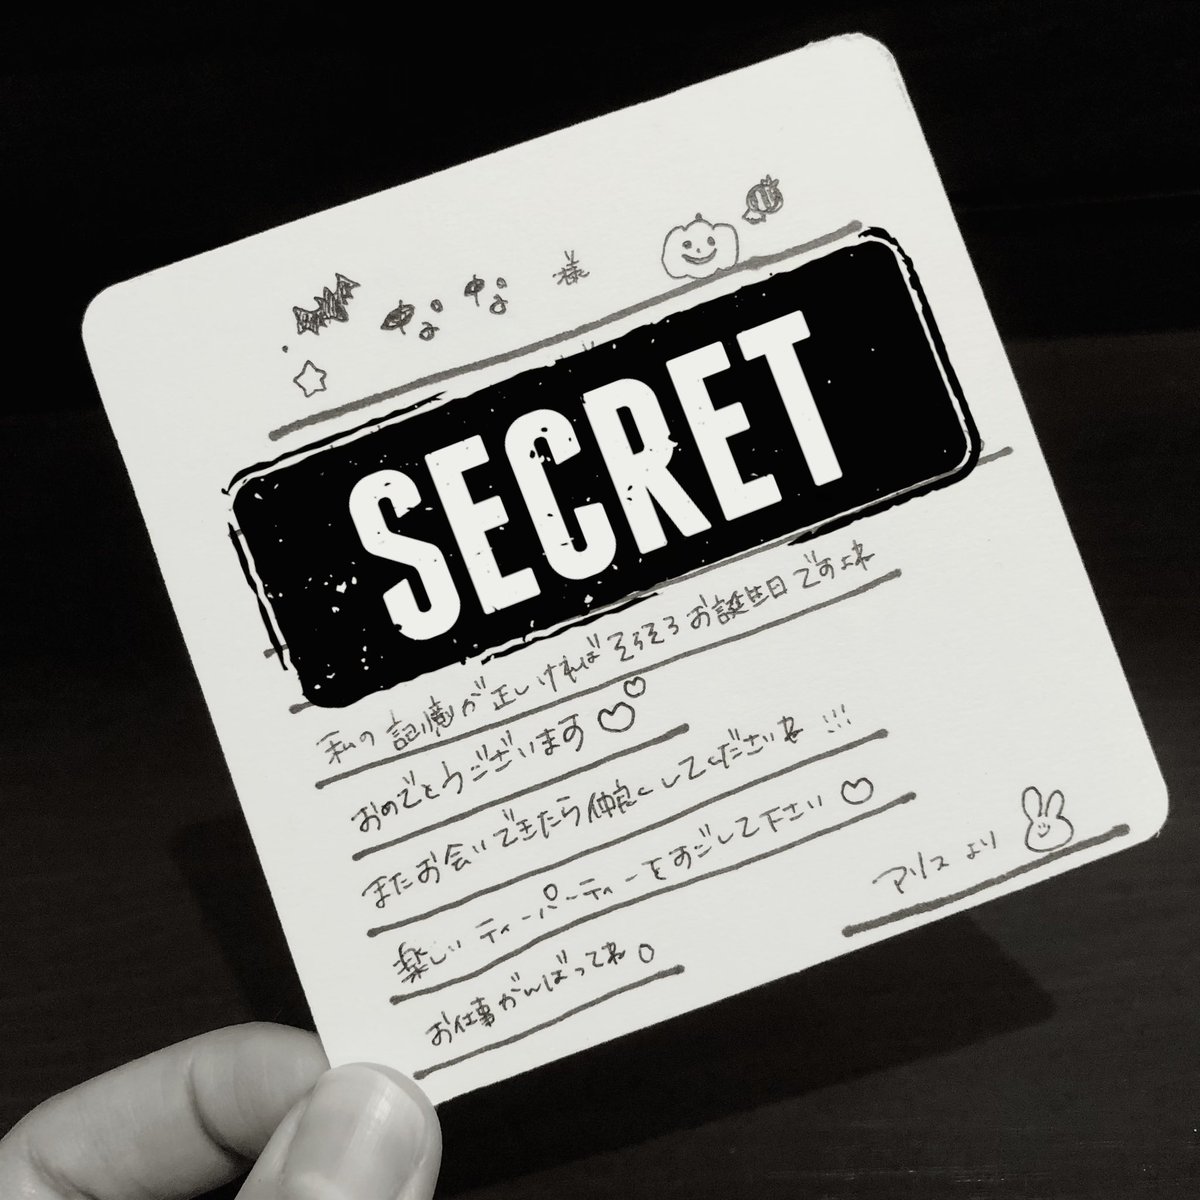 ゆなゆな 様
SECRET
私の記憶が正しければそろそろお誕生日ですよね
おめでとうございます♡♡
またお会いできたら仲良くしてくださいね!!!
楽しいティーパーティーをすごして下さい♡
お仕事がんばってね
アリスより